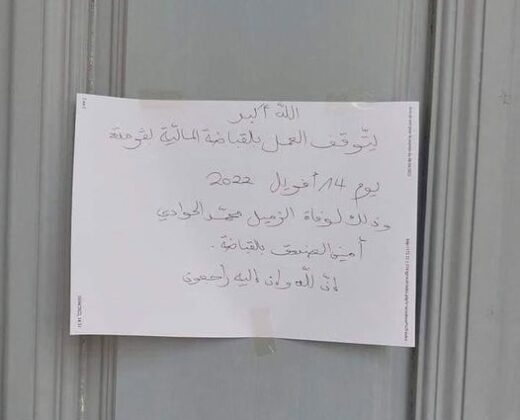 الله أكبر
ليتوقف العمل بلقباضة المالية لشرمتة
يوم 14 أفريل 2022
وذلك لوفاة الزميل محمد الحوادي
أمين الصندوق بلقباضة.
إنا لله وإنا إليه راجعون